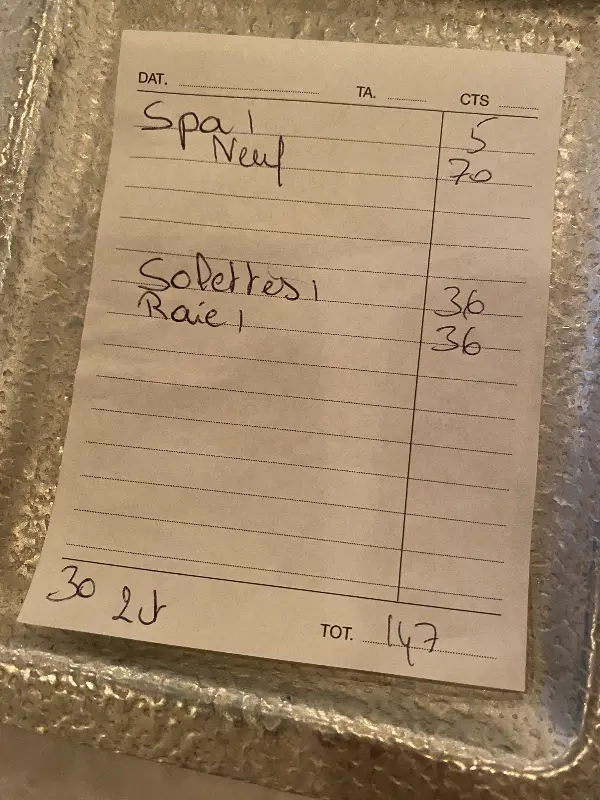 DAT. TA. CTS
Spa 1 5
Neuf 70
Solettes 1 36
Raie 1 36
30
TOT. 147